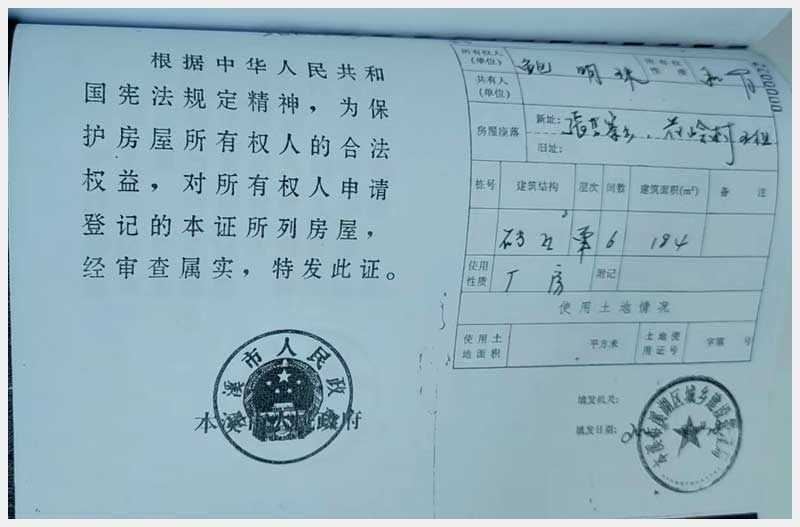 根据中华人民共和
国宪法规定精神，为保
护房屋所有权人的合法
权益，对所有权人申请
登记的本证所列房屋，
经审查属实，特发此证。
本溪市人民政府
市人民政
所有权人
(单位)
明珠
所有权
性质
共有人
(单位)
房屋座落
新址:
旧址:
栋号
建筑结构
层次
间数
建筑面积(m²)
备 注
6
184
使用
性质
厂房
附记
使用土地情况
使用土
地面积
平方米
土地使
用证号
字第 号
填发机关:
填发日期:
本溪市溪湖区城乡建设